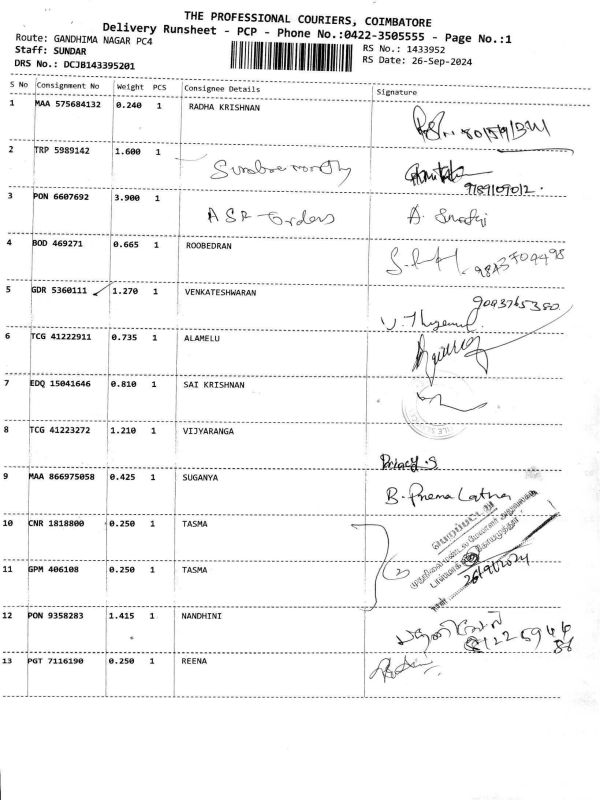 THE PROFESSIONAL COURIERS, COIMBATORE
Delivery Runsheet - PCP - Phone No.:0422-3505555 - Page No.:1
Route: GANDHIMA NAGAR PC4
RS No.: 1433952
Staff: SUNDAR
RS Date: 26-Sep-2024
DRS No.: DCJB143395201
S No Consignment No Weight PCS Consignee Details Signature
1 MAA 575684132 0.240 1 RADHA KRISHNAN
2 TRP 5989142 1.600 1
9789109012.
3 PON 6607692 3.900 1 ASR Traders
4 BOD 469271 0.665 1 ROOBEDRAN
9843704498
5 GDR 5360111 1.270 1 VENKATESHWARAN
9043765380
6 TCG 41222911 0.735 1 ALAMELU
7 EDQ 15041646 0.810 1 SAI KRISHNAN
8 TCG 41223272 1.210 1 VIJYARANGA
9 MAA 866975058 0.425 1 SUGANYA B. Prema Latha
10 CNR 1818800 0.250 1 TASMA
பெறப்பட்டது
11 GPM 406108 0.250 1 TASMA
26/9/2024
12 PON 9358283 1.415 1 NANDHINI
13 PGT 7116190 0.250 1 REENA